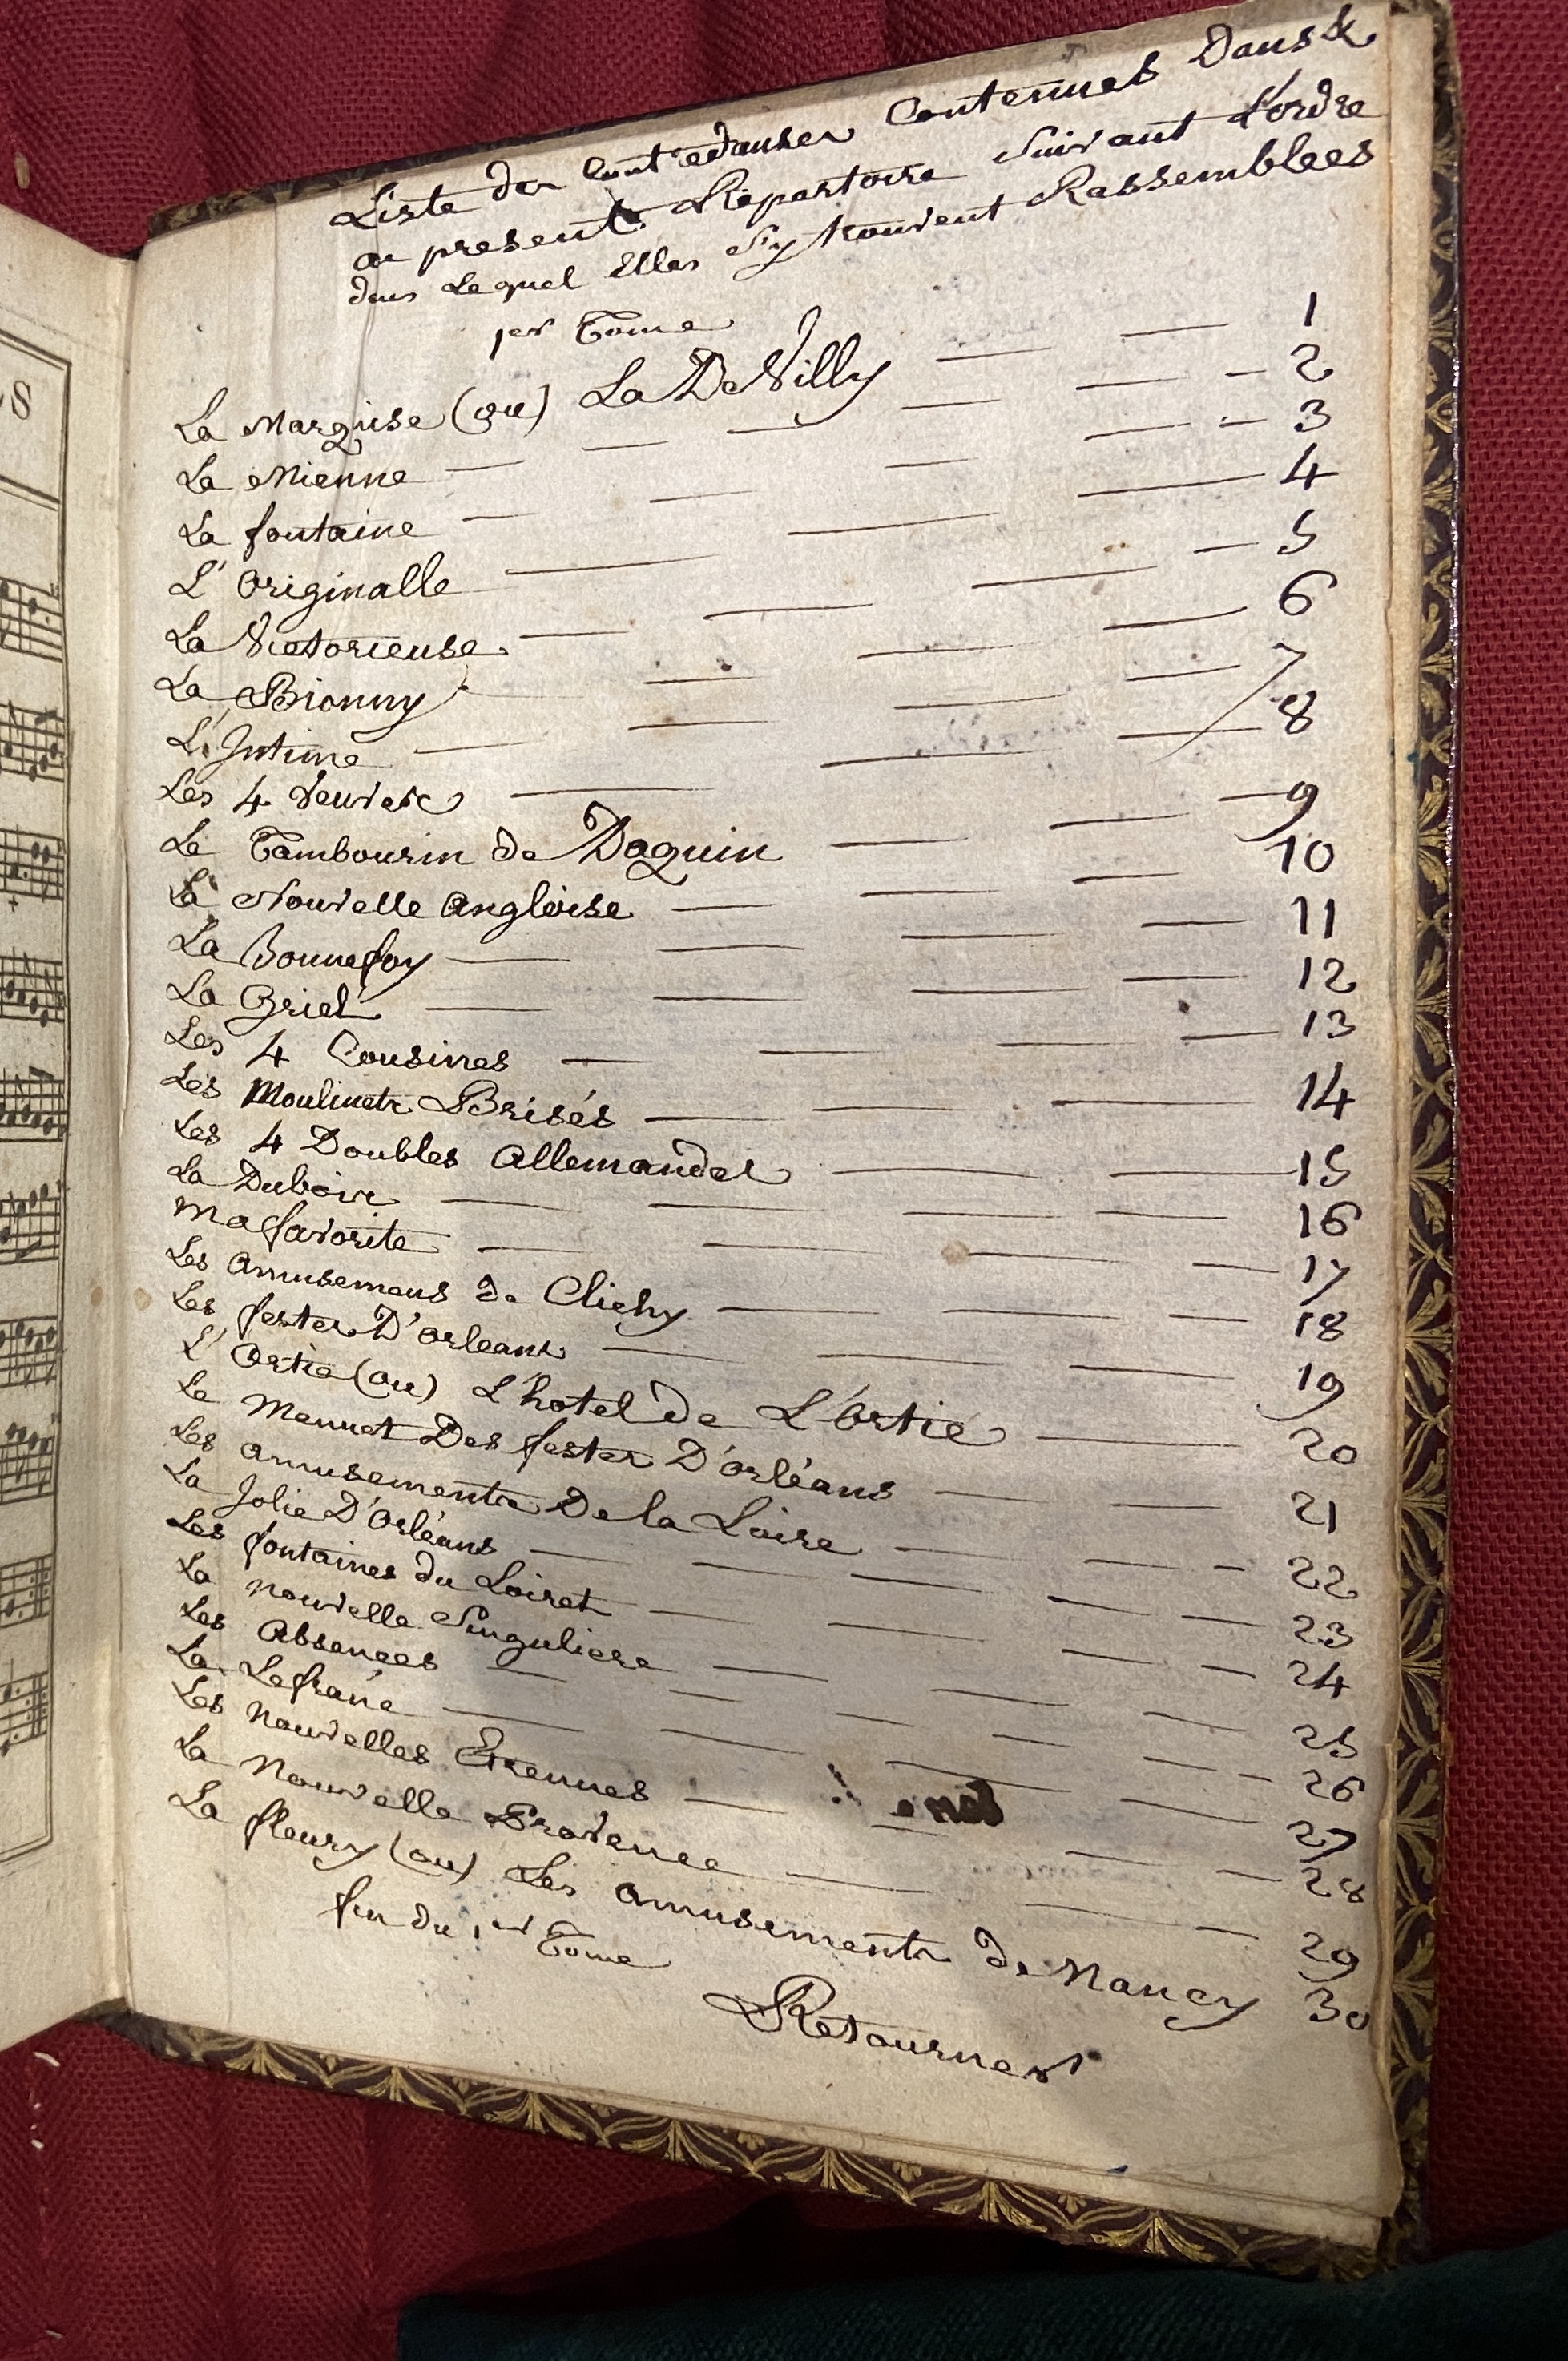 Liste des Contredanses Contenues Dans Le
au present Répertoire Suivant L'ordre
dans Lequel Elles S'y trouvent Rassemblees
1er Tome
La Marquise (ou) La DeVilly 1
La Mienne 2
La fontaine 3
L'Originalle 4
La Victorieuse 5
La Bionny 6
L'Intime 7
Les 4 Veuves 8
Le Tambourin de Daquin 9
La Nouvelle Angloise 10
La Bonnefoy 11
La Griel 12
Les 4 Cousines 13
Les Moulinets Brisés 14
Les 4 Doubles Allemandes 15
La Dubois 16
Ma favorite 17
Les Amusemens de Clichy 18
Les festes D'orleans 19
L'Ortie (ou) L'hotel de L'Ortie 20
Le Menuet Des festes D'orléans 21
Les amusements De la Loire 22
La Jolie D'Orléans 23
Les fontaines du Loiret 24
La nouvelle Singuliere 25
Les Absences 26
La Lefranc 27
Les Nouvelles Etrennes 28
La Nouvelle Provence 29
La fleury (ou) Les amusements de Nancy 30
fin du 1er Tome
Retournes
S